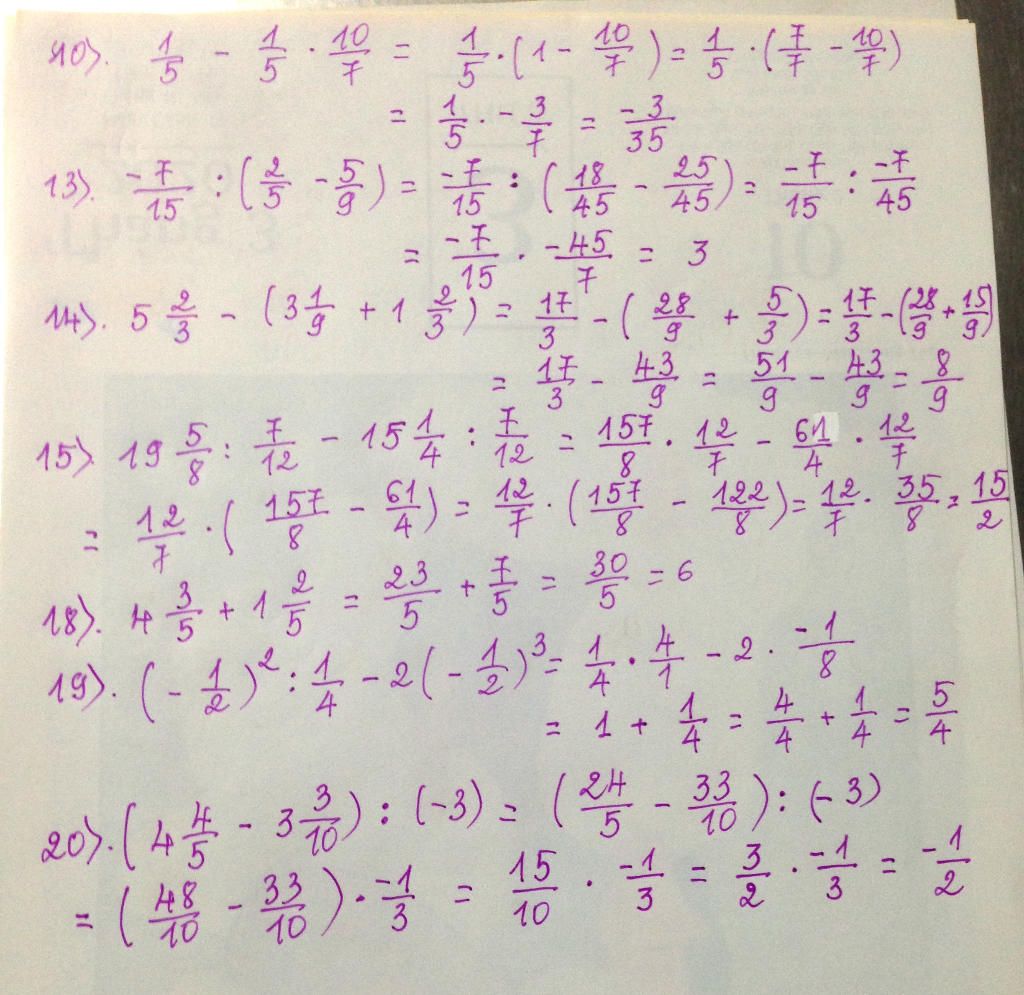 10). 1/5 - 1/5 · 10/7 = 1/5 · (1 - 10/7) = 1/5 · (7/7 - 10/7)
= 1/5 · -3/7 = -3/35
13). -7/15 : (2/5 - 5/9) = -7/15 : (18/45 - 25/45) = -7/15 : -7/45
= -7/15 · -45/7 = 3
14). 5 2/3 - (3 1/9 + 1 2/3) = 17/3 - (28/9 + 5/3) = 17/3 - (28/9 + 15/9)
= 17/3 - 43/9 = 51/9 - 43/9 = 8/9
15). 19 5/8 : 7/12 - 15 1/4 : 7/12 = 157/8 · 12/7 - 61/4 · 12/7
= 12/7 · (157/8 - 61/4) = 12/7 · (157/8 - 122/8) = 12/7 · 35/8 = 15/2
18). 4 3/5 + 1 2/5 = 23/5 + 7/5 = 30/5 = 6
19). (-1/2)² : 1/4 - 2(-1/2)³ = 1/4 · 4/1 - 2 · -1/8
= 1 + 1/4 = 4/4 + 1/4 = 5/4
20). (4 4/5 - 3 3/10) : (-3) = (24/5 - 33/10) : (-3)
= (48/10 - 33/10) · -1/3 = 15/10 · -1/3 = 3/2 · -1/3 = -1/2